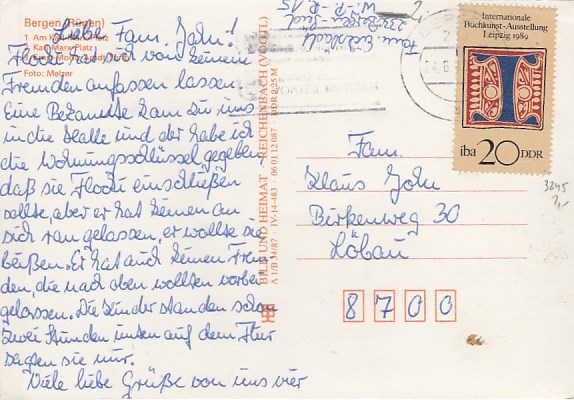 Bergen (Rügen)
1 Am Karl-Marx-Platz
2 Karl-Marx-Platz
Foto: Melzer
Liebe Fam. John!
Flocki von sich von keinem
Fremden anfassen lassen.
Eine Bekannte kam zu uns
in die Halle und der habe ich
die Wohnungsschlüssel gegeben
daß sie Flocki einschließen
sollte, aber er hat keinen an
sich ran gelassen, er wollte sie
beißen. Er hat auch keinen Frem-
den, die nach oben wollten vorbei
gelassen. Die Kinder standen schon
zwei Stunden unten auf dem Flur
sagten sie mir.
Viele liebe Grüße von uns vier
BILD UND HEIMAT REICHENBACH (VOGTL)
A 1/B 34/87 IV-14-483 06 01 12 087 DDR 0,25 M
Fam.
2330 Bergen Süd
W.-P.-R. 15
Internationale
Buchkunst-Ausstellung
Leipzig 1989
I
iba 20 DDR
Fam.
Klaus John
Birkenweg 30
Löbau
8700
3245
2,-